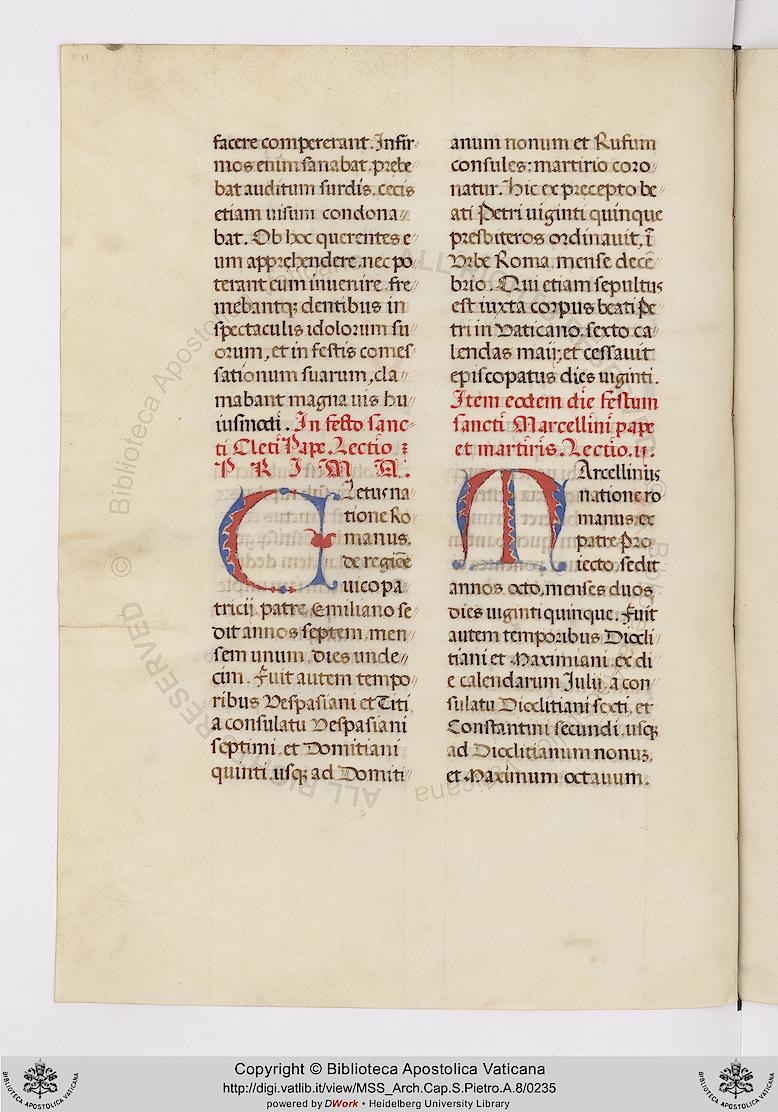 facere compererant. Infir//
mos enim sanabat. prebe
bat auditum surdis, cecis
etiam uisum condona//
bat. Ob hoc querentes e//
um apprehendere, nec po
terant eum inuenire. fre
mebantq; dentibus in
spectaculis idolorum su//
orum, et in festis comes//
sationum suarum, cla//
mabant magna uis hu//
iusmodi. In festo sanc-
ti Cleti Pape. Lectio
P R I M A.
Cletus na
tione Ro//
manus,
de regiōe
uico pa
tricii, patre Emiliano se//
dit annos septem, men//
sem unum, dies unde//
cim. Fuit autem tempo//
ribus Vespasiani et Titi,
a consulatu Vespasiani
septimi, et Domitiani
quinti, usq; ad Domiti//
anum nonum et Rufum
consules: martirio coro//
natur. Hic ex precepto be//
ati Petri uiginti quinque
presbiteros ordinauit, ī
Vrbe Roma, mense decē//
brio. Qui etiam sepultus
est iuxta corpus beati Pe
tri in Vaticano, sexto ca//
lendas maij: et cessauit
episcopatus dies uiginti.
Item eodem die festum
sancti Marcellini pape
et martiris. Lectio. ii.
Marcellinus
natione ro
manus, ex
patre Pro
iecto, sedit
annos octo, menses duos,
dies uiginti quinque. Fuit
autem temporibus Diocli//
tiani et Maximiani, ex di
e calendarum Julij, a con//
sulatu Dioclitiani sexti, et
Constantini secundi, usq;
ad Dioclitianum nonuȝ,
et Maximum octauum.
Copyright © Biblioteca Apostolica Vaticana
http://digi.vatlib.it/view/MSS_Arch.Cap.S.Pietro.A.8/0235
powered by DWork • Heidelberg University Library